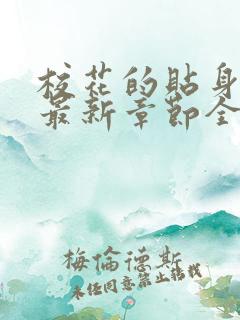 校花的贴身
最新章节全
梅倫德斯
未经同意禁止转载